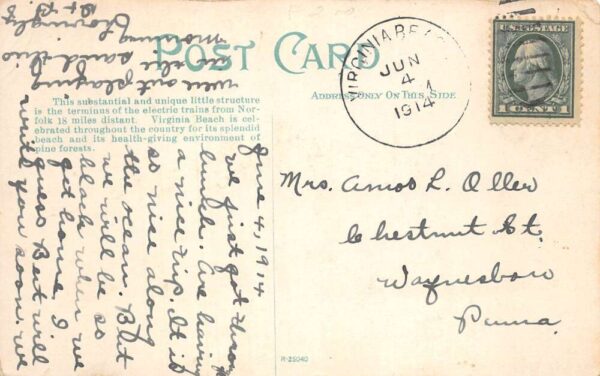 POST CARD
ADDRESS ONLY ON THIS SIDE
VIRGINIA BEACH
JUN
4
1914
1 CENT 1
This substantial and unique little structure
is the terminus of the electric trains from Nor-
folk 18 miles distant. Virginia Beach is cel-
ebrated throughout the country for its splendid
beach and its health-giving environment of
pine forests.
June 4, 1914
We just got through
lunch. Are having
a nice trip. It is
so nice along
the ocean. But
we will be so
black when we
get home. I
guess Bert will
write you soon. We
were out playing
in the sand this
morning
Lovingly
B & B
Mrs. Amos L. Oller
Chestnut St.
Waynesboro
Penna.
R-25040